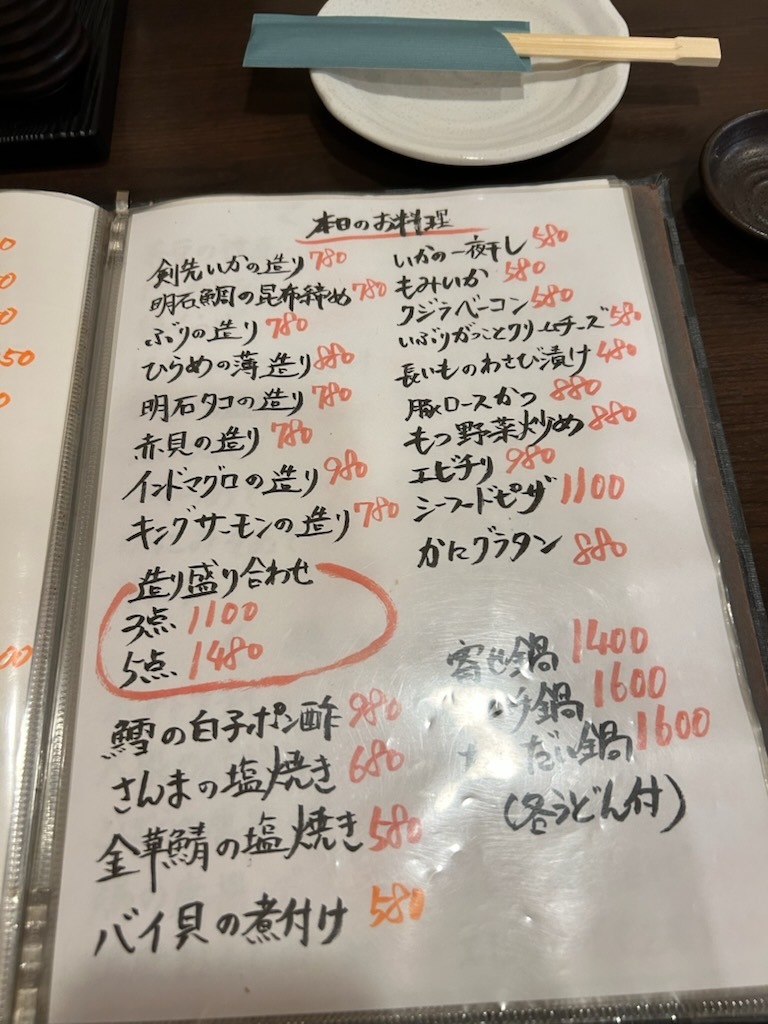 本日のお料理
剣先いかの造り 780
明石鯛の昆布締め 780
ぶりの造り 780
ひらめの薄造り 880
明石タコの造り 780
赤貝の造り 780
インドマグロの造り 980
キングサーモンの造り 780
造り盛り合わせ
3点 1100
5点 1480
鱈の白子ポン酢 980
さんまの塩焼き 680
金華鯖の塩焼き 580
バイ貝の煮付け 580
いかの一夜干し 580
もみいか 580
クジラベーコン 580
いぶりがっことクリームチーズ 580
長いものわさび漬け 480
豚ロースかつ 880
もつ野菜炒め 880
エビチリ 980
シーフードピザ 1100
かにグラタン 880
寄せ鍋 1400
チ鍋 1600
だい鍋 1600
(各うどん付)
0
0
0
50
0
00